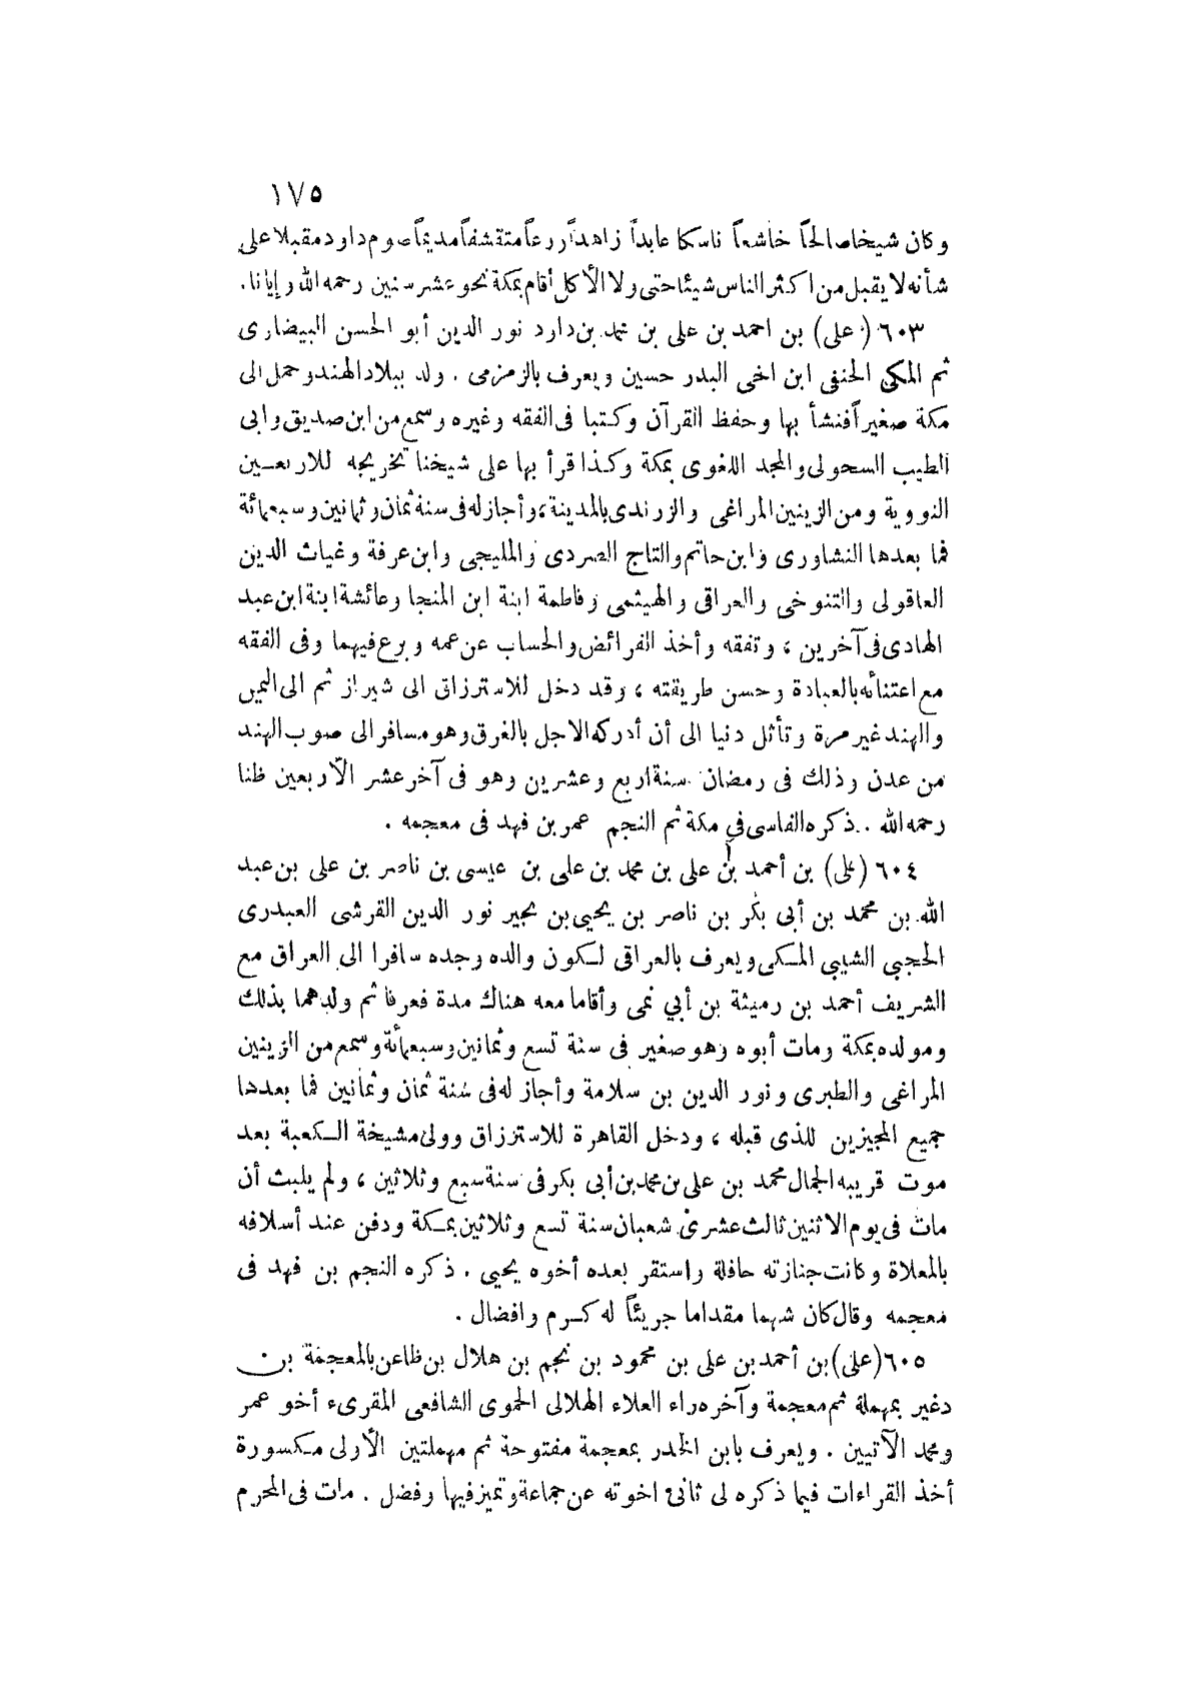 ١٧٥
وكان شيخا صالحاً خاشعاً ناسكا عابداً زاهداً ورعاً متقشفاً مديماً صوم داود مقبلا على
شأنه لا يقبل من اكثر الناس شيئا حتى ولا الأكل أقام بمكة نحو عشر سنين رحمه الله وإيانا .
٦٠٣ (على) بن احمد بن على بن محمد بن داود نور الدين أبو الحسن البيضاوى
ثم المكى الحنفى ابن اخى البدر حسين ويعرف بالزمزمى . ولد ببلاد الهند وحمل الى
مكة صغيراً فنشأ بها وحفظ القرآن وكتبا فى الفقه وغيره وسمع من ابن صديق وابى
الطيب السحولى والمجد اللغوى بمكة وكذا قرأ بها على شيخنا تخريجه للاربعين
النووية ومن الزينين المراغى والزرندى بالمدينة ، وأجاز له فى سنة ثمان وثمانين وسبعمائة
فما بعدها النشاورى وابن حاتم والتاج الصردى والمليجى وابن عرفة وغياث الدين
العاقولى والتنوخى والعراقى والهيثمى وفاطمة ابنة ابن المنجا وعائشة ابنة ابن عبد
الهادى فى آخرين ، وتفقه وأخذ الفرائض والحساب عن عمه وبرع فيهما وفى الفقه
مع اعتنائه بالعبادة وحسن طريقته ، وقد دخل للاسترزاق الى شيراز ثم الى اليمن
والهند غير مرة وتأثل دنيا الى أن أدركه الاجل بالغرق وهو مسافر الى صوب الهند
من عدن وذلك فى رمضان سنة اربع وعشرين وهو فى آخر عشر الاربعين ظنا
رحمه الله . ذكره الفاسى في مكة ثم النجم عمر بن فهد فى معجمه .
٦٠٤ (على) بن أحمد بن على بن محمد بن على بن عيسى بن ناصر بن على بن عبد
الله بن محمد بن أبى بكر بن ناصر بن يحيى بن بحير نور الدين القرشى العبدرى
الحجبي الشيبي المكى ويعرف بالعراقى لكون والده وجده سافرا الى العراق مع
الشريف أحمد بن رميثة بن أبي نمى وأقاما معه هناك مدة فعرفا ثم ولدهما بذلك
ومولده بمكة ومات أبوه وهو صغير فى سنة تسع وثمانين وسبعمائة وسمع من الزينين
المراغى والطبرى ونور الدين بن سلامة وأجاز له فى سنة ثمان وثمانين فما بعدها
جميع المجيزين للذى قبله ، ودخل القاهرة للاسترزاق وولى مشيخة الكعبة بعد
موت قريبه الجمال محمد بن على بن محمد بن أبى بكر فى سنة سبع وثلاثين ، ولم يلبث أن
مات فى يوم الاثنين ثالث عشرى شعبان سنة تسع وثلاثين بمكة ودفن عند أسلافه
بالمعلاة وكانت جنازته حافلة واستقر بعده أخوه يحيى . ذكره النجم بن فهد فى
معجمه وقال كان شهما مقداما جريئاً له كرم وافضال .
٦٠٥ (على) بن أحمد بن على بن محمود بن نجم بن هلال بن ظاعن بالمعجمة بن
دغير بمهملة ثم معجمة وآخره راء العلاء الهلالى الحموى الشافعى المقرىء أخو عمر
ومحمد الآتيين . ويعرف بابن الخدر بمعجمة مفتوحة ثم مهملتين الأولى مكسورة
أخذ القراءات فيما ذكره لى ثانى اخوته عن جماعة وتميز فيها وفضل . مات فى المحرم